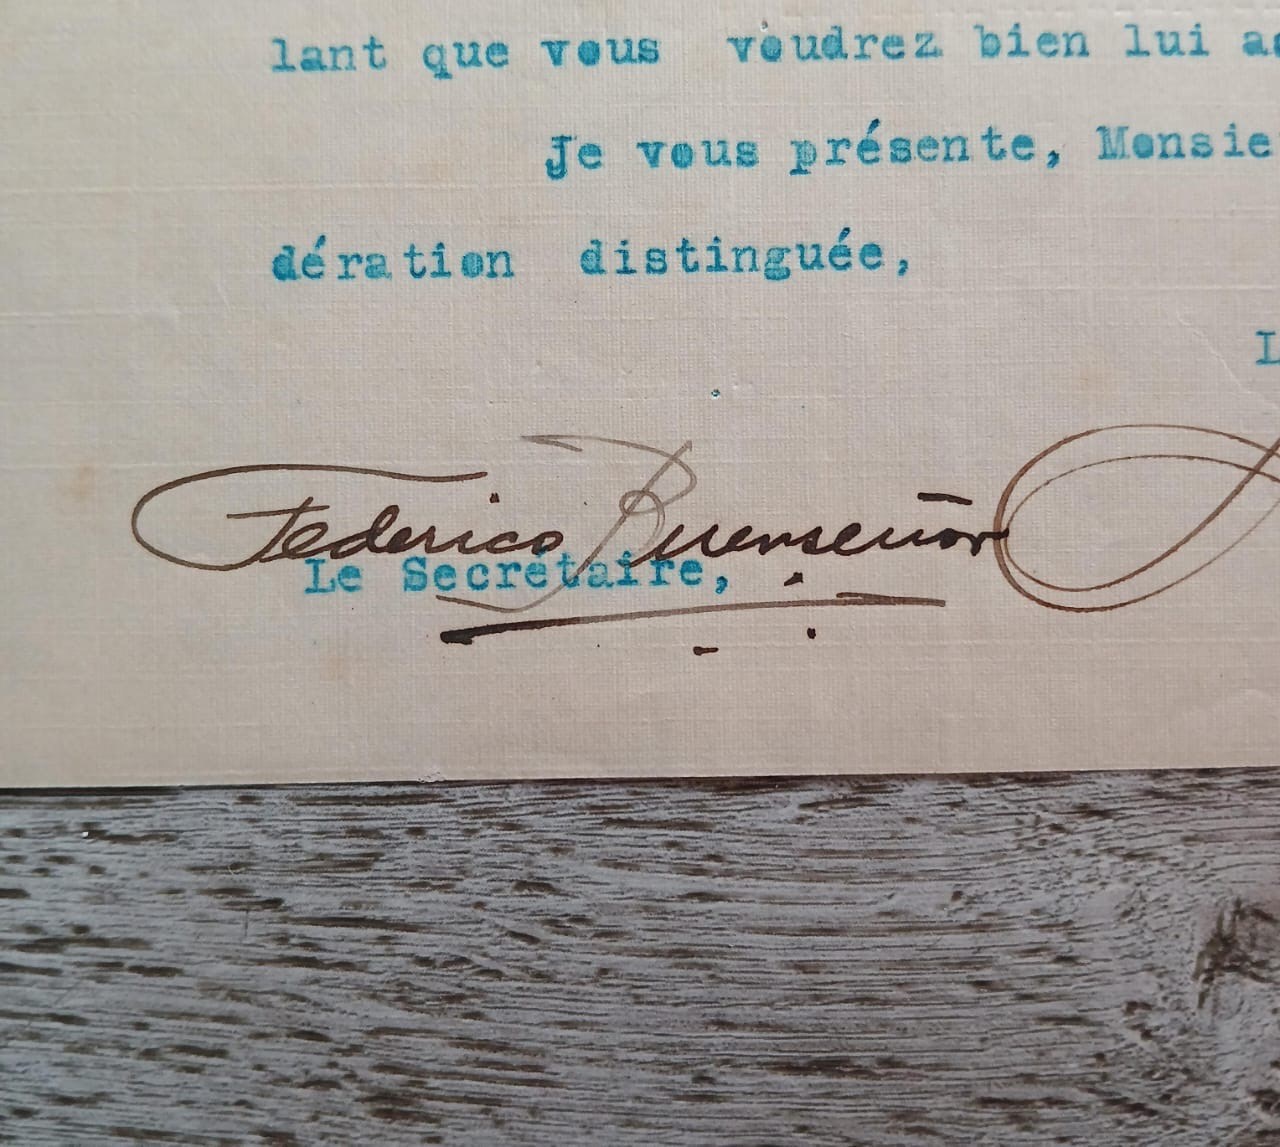 lant que vous voudrez bien lui as
Je vous présente, Monsie
dération distinguée,
L
Federico Buenseñor
Le Secrétaire,